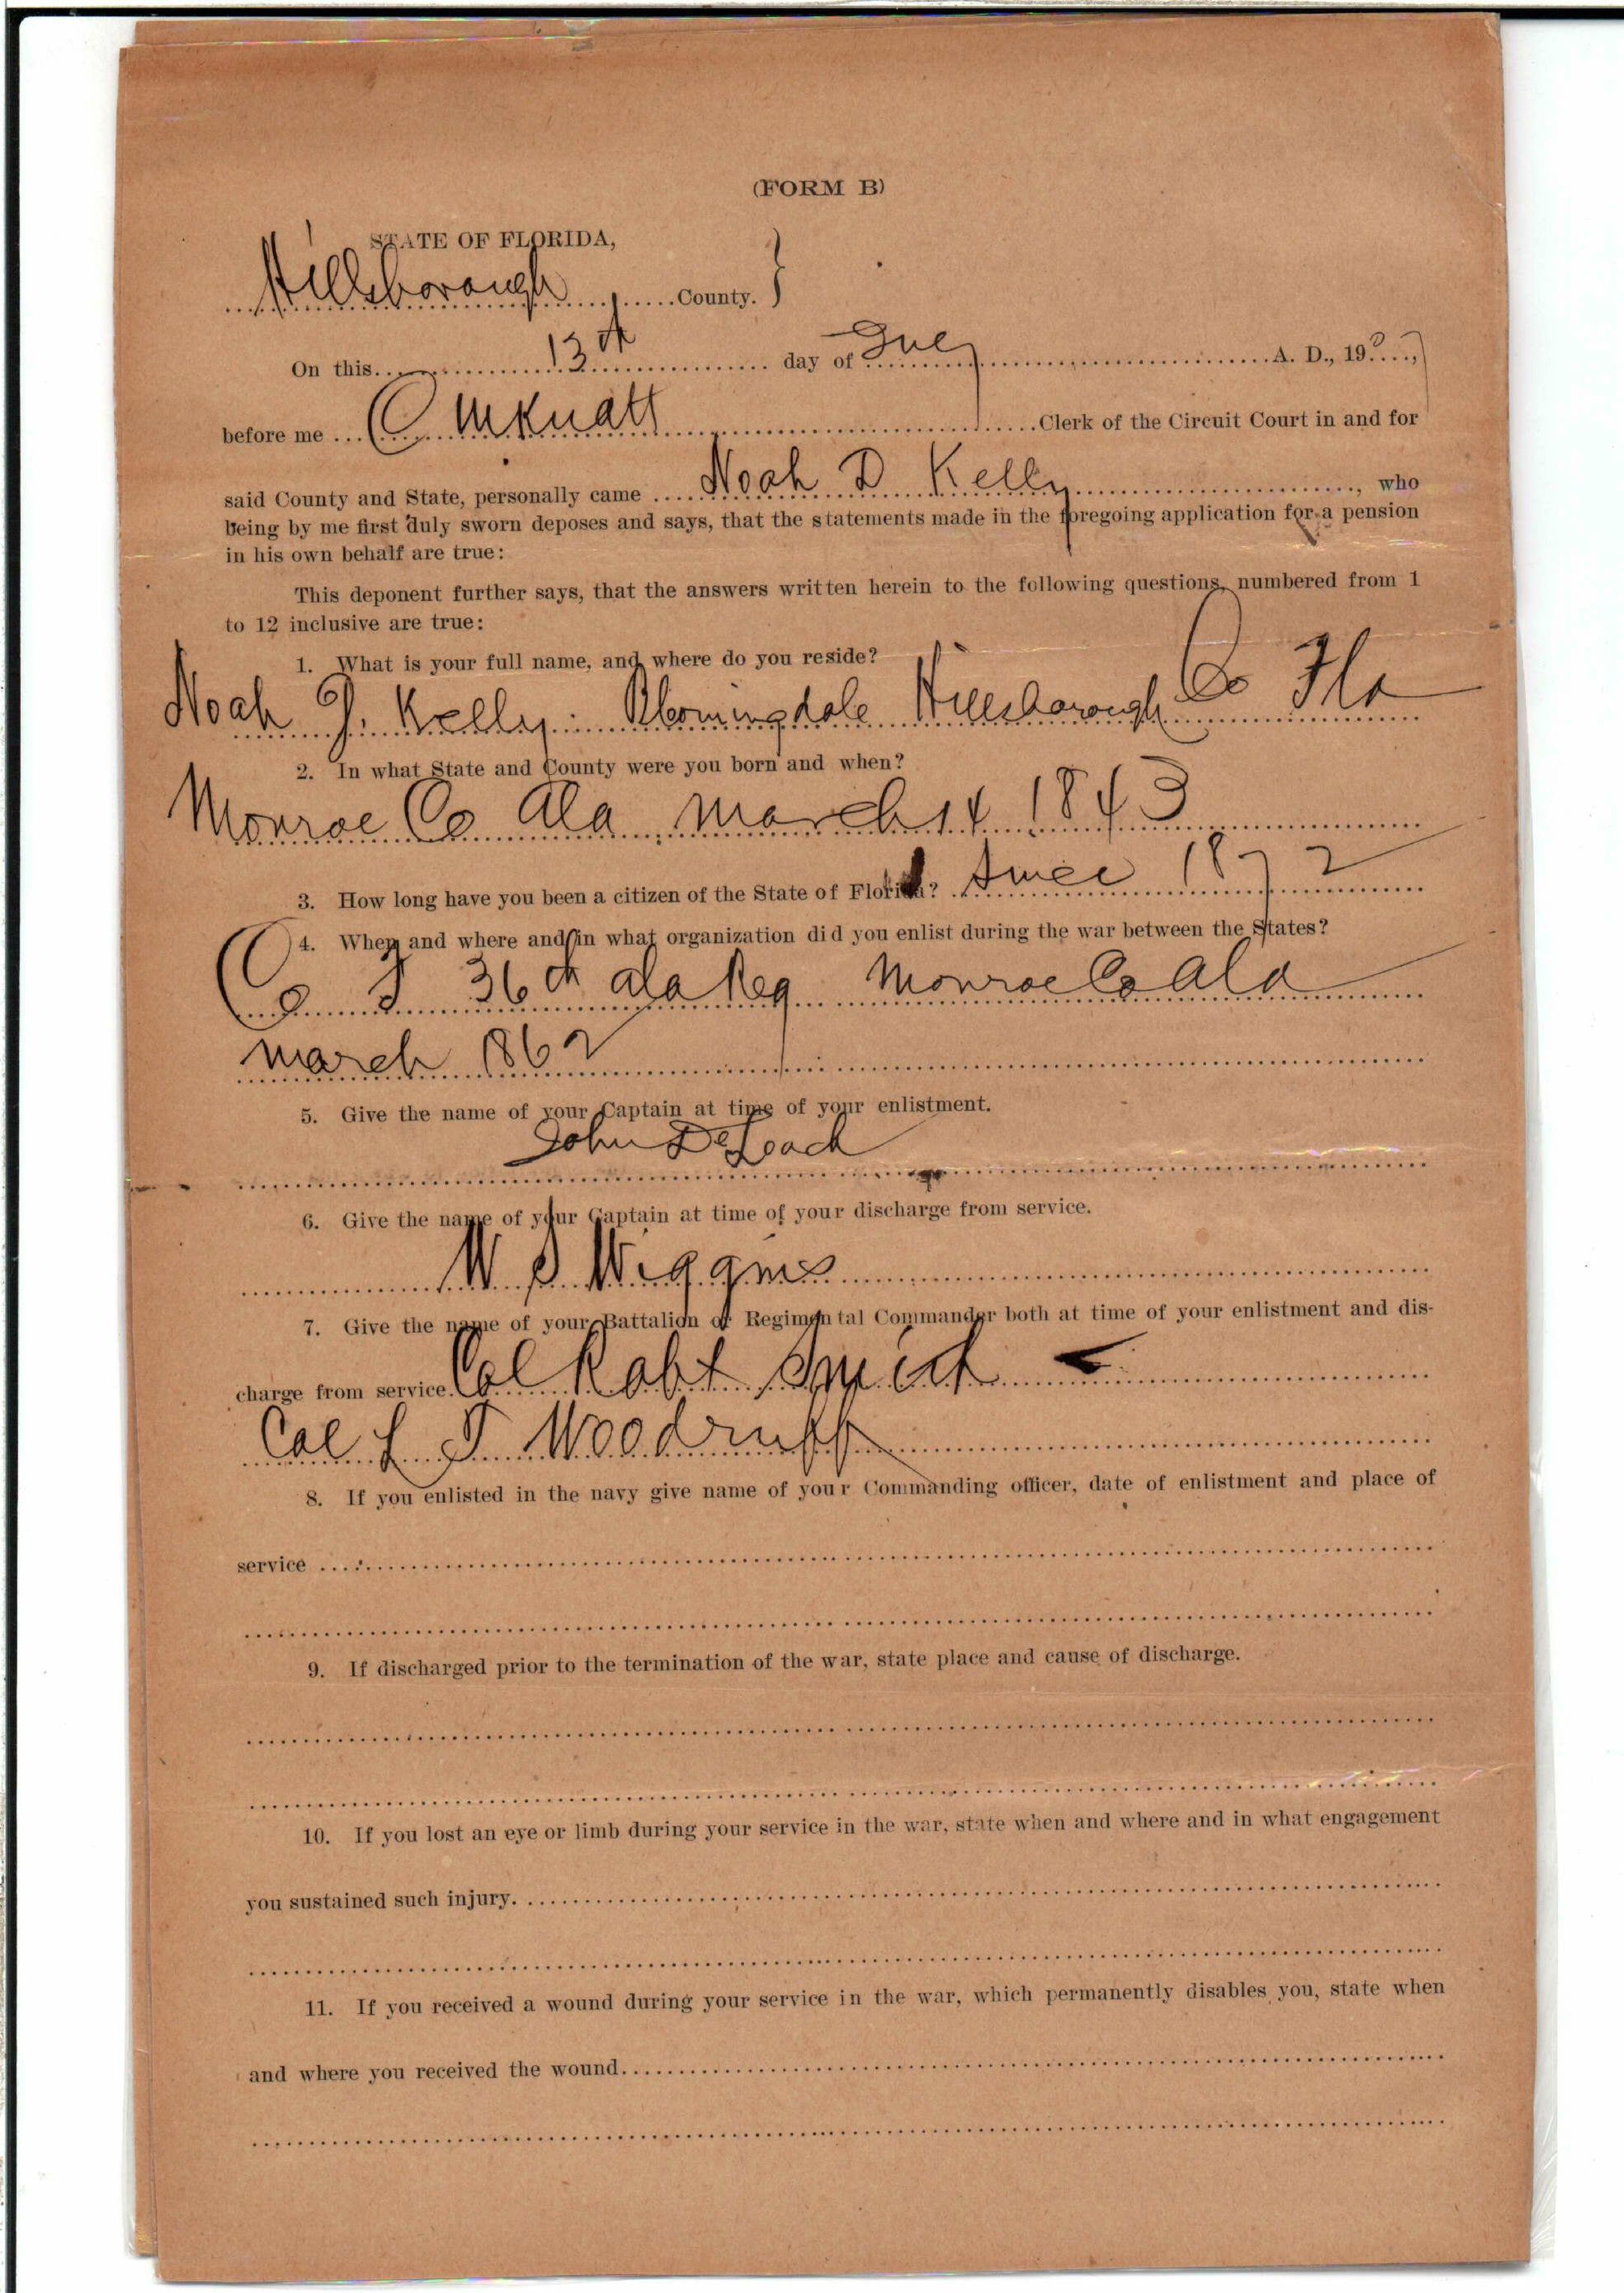 (FORM B)
STATE OF FLORIDA,
Hillsborough County.
On this 13th day of July A. D., 1907,
before me C M Knatt Clerk of the Circuit Court in and for
said County and State, personally came Noah D Kelly, who
being by me first duly sworn deposes and says, that the statements made in the foregoing application for a pension
in his own behalf are true:
This deponent further says, that the answers written herein to the following questions, numbered from 1
to 12 inclusive are true:
1. What is your full name, and where do you reside?
Noah D. Kelly. Bloomingdale Hillsborough Co Fla
2. In what State and County were you born and when?
Monroe Co Ala, March 14 1843
3. How long have you been a citizen of the State of Florida? Since 1872
4. When and where and in what organization did you enlist during the war between the States?
Co 36th Ala Reg Monroe Co Ala
March 1862
5. Give the name of your Captain at time of your enlistment.
John DeLoach
6. Give the name of your Captain at time of your discharge from service.
W. S. Wiggins
7. Give the name of your Battalion or Regimental Commander both at time of your enlistment and dis-
charge from service. Col Robt Smith
Col L T Woodruff
8. If you enlisted in the navy give name of your Commanding officer, date of enlistment and place of
service
9. If discharged prior to the termination of the war, state place and cause of discharge.
10. If you lost an eye or limb during your service in the war, state when and where and in what engagement
you sustained such injury.
11. If you received a wound during your service in the war, which permanently disables you, state when
and where you received the wound